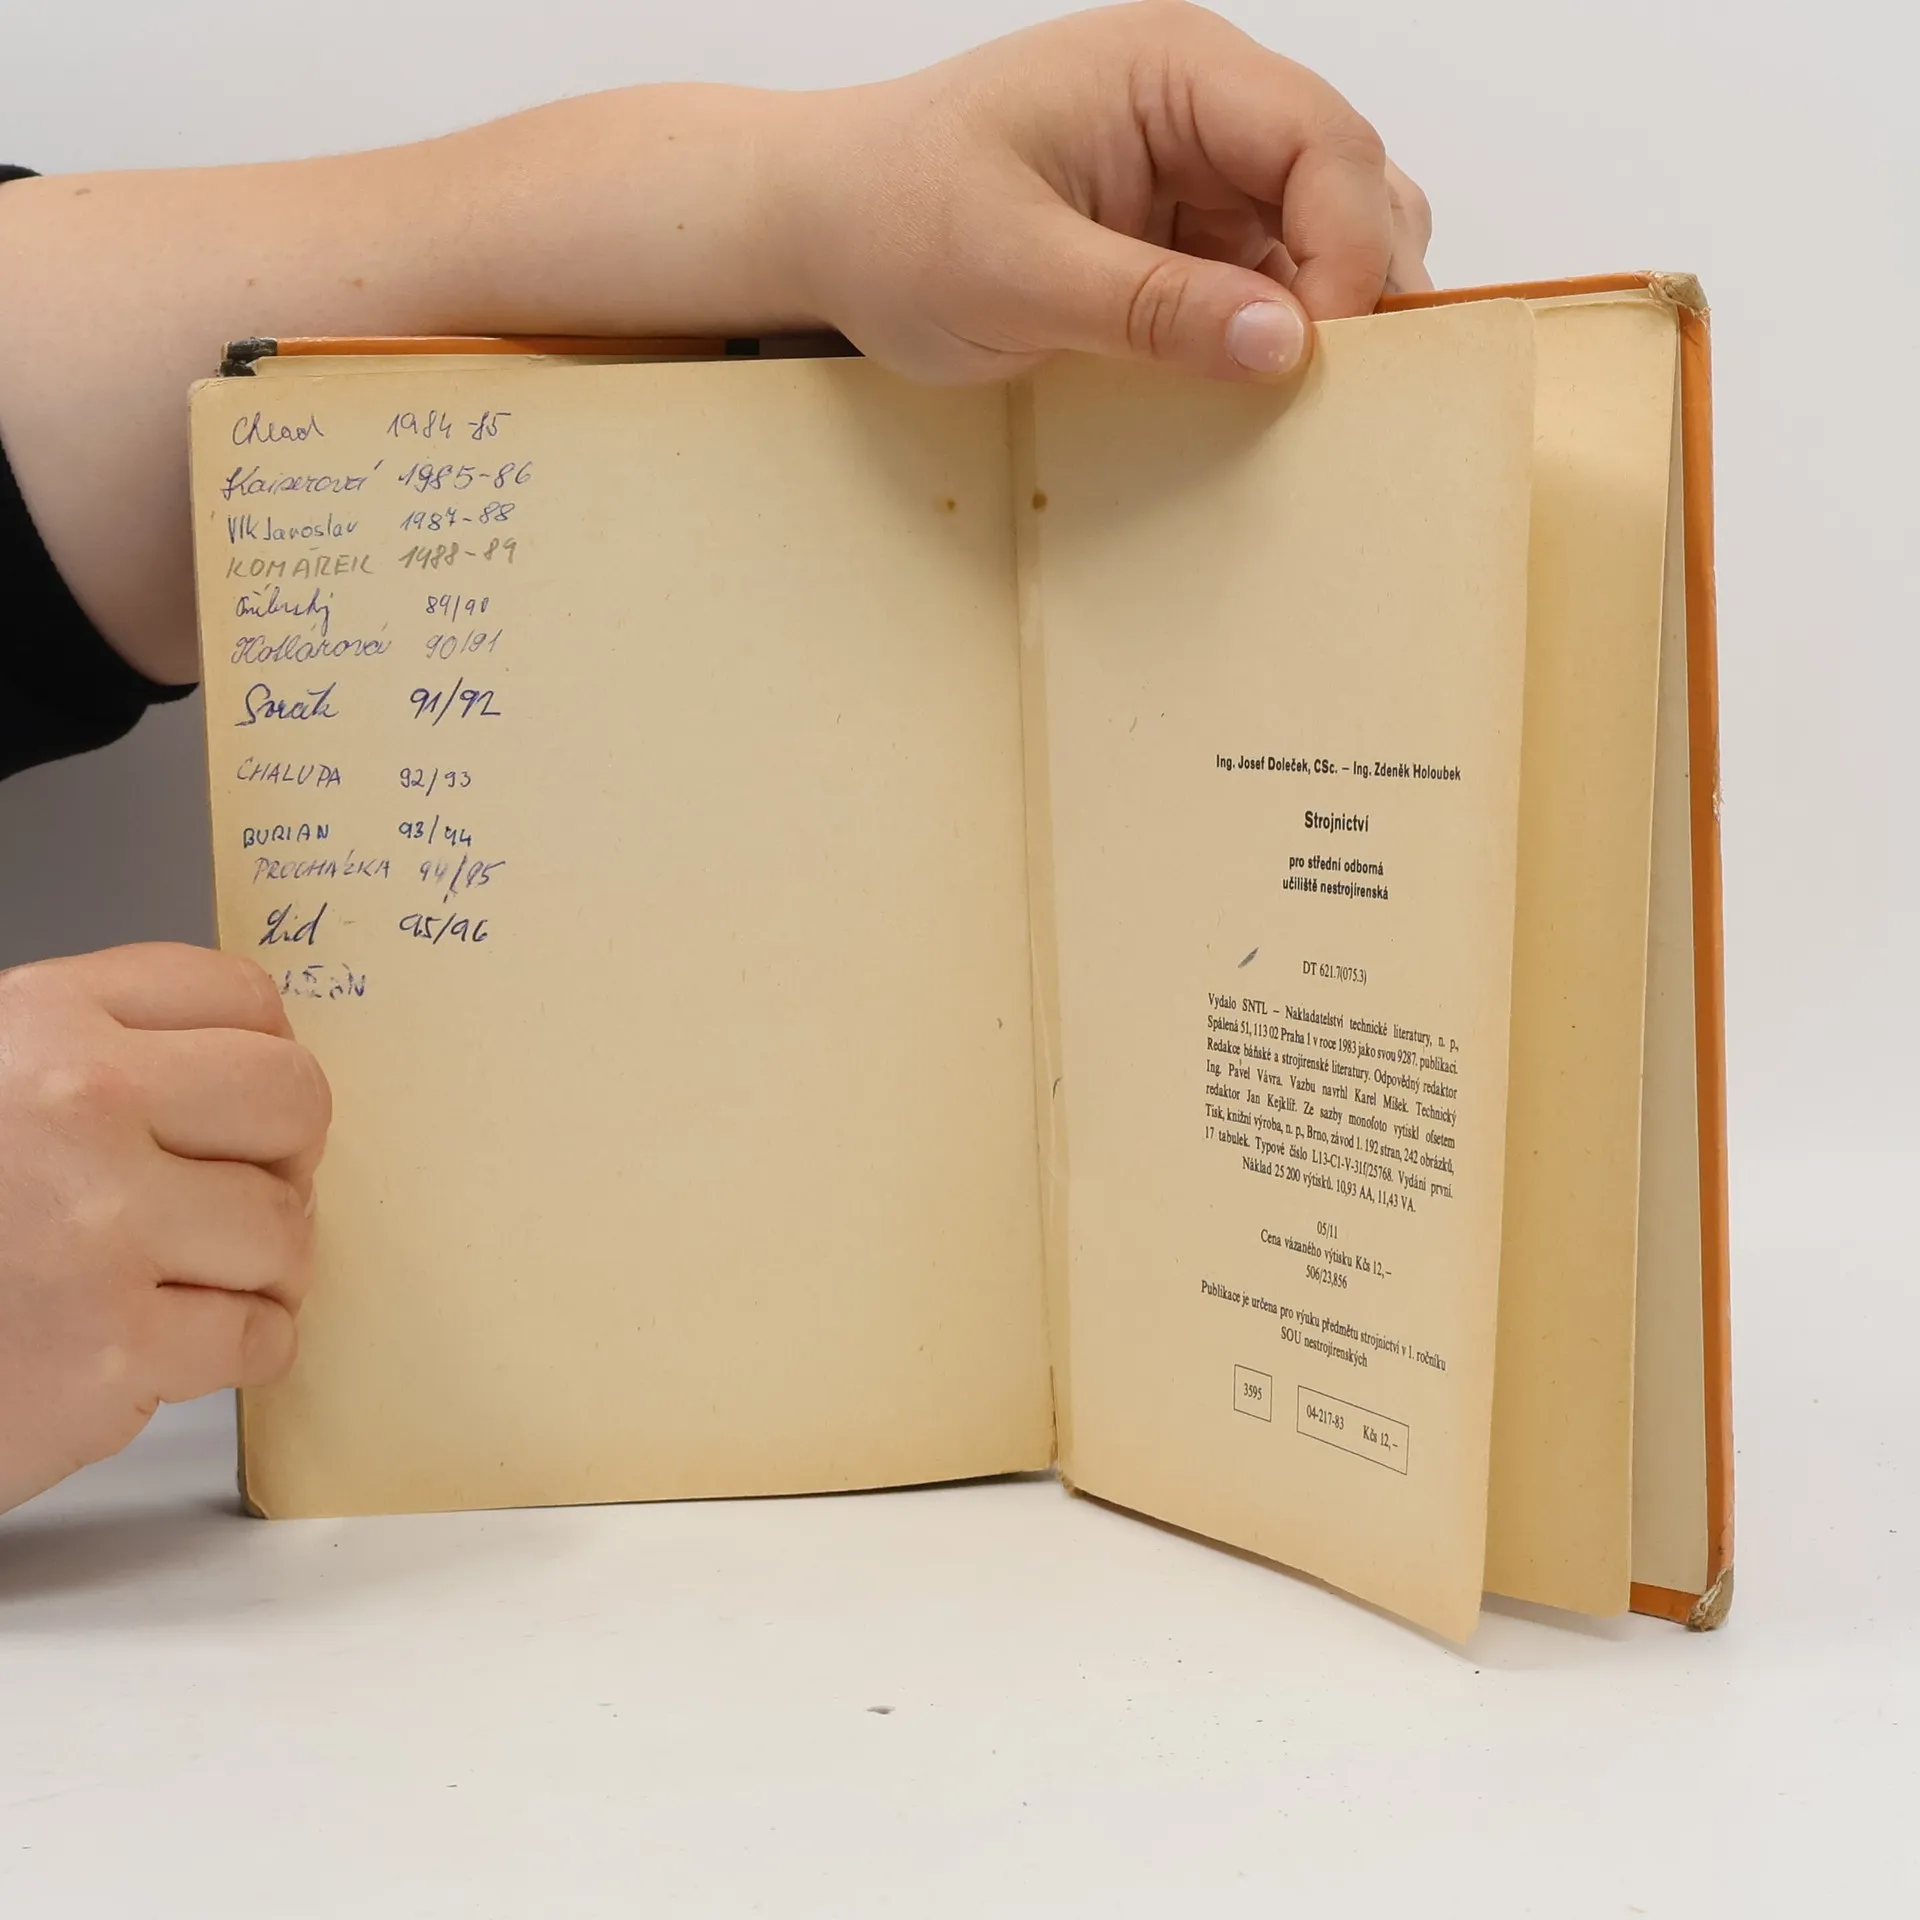 Chlad 1984-85
Kaiserová 1985-86
Vlk Jaroslav 1987-88
KOMÁREK 1988-89
89/90
Kollárová 90/91
91/92
CHALUPA 92/93
BURIAN 93/94
PROCHÁZKA 94/95
95/96
Ing. Josef Doleček, CSc. – Ing. Zdeněk Holoubek
Strojnictví
pro střední odborná
učiliště nestrojírenská
DT 621.7(075.3)
Vydalo SNTL – Nakladatelství technické literatury, n. p.,
Spálená 51, 113 02 Praha 1 v roce 1983 jako svou 9287. publikaci.
Redakce báňské a strojírenské literatury. Odpovědný redaktor
Ing. Pavel Vávra. Vazbu navrhl Karel Míšek. Technický
redaktor Jan Kejklíř. Ze sazby monofoto vytiskl ofsetem
Tisk, knižní výroba, n. p., Brno, závod 1. 192 stran, 242 obrázků,
17 tabulek. Typové číslo L13-C1-V-31f/25768. Vydání první.
Náklad 25 200 výtisků. 10,93 AA, 11,43 VA.
05/11
Cena vázaného výtisku Kčs 12,–
506/23,856
Publikace je určena pro výuku předmětu strojnictví v 1. ročníku
SOU nestrojírenských
3595
04-217-83 Kčs 12,–